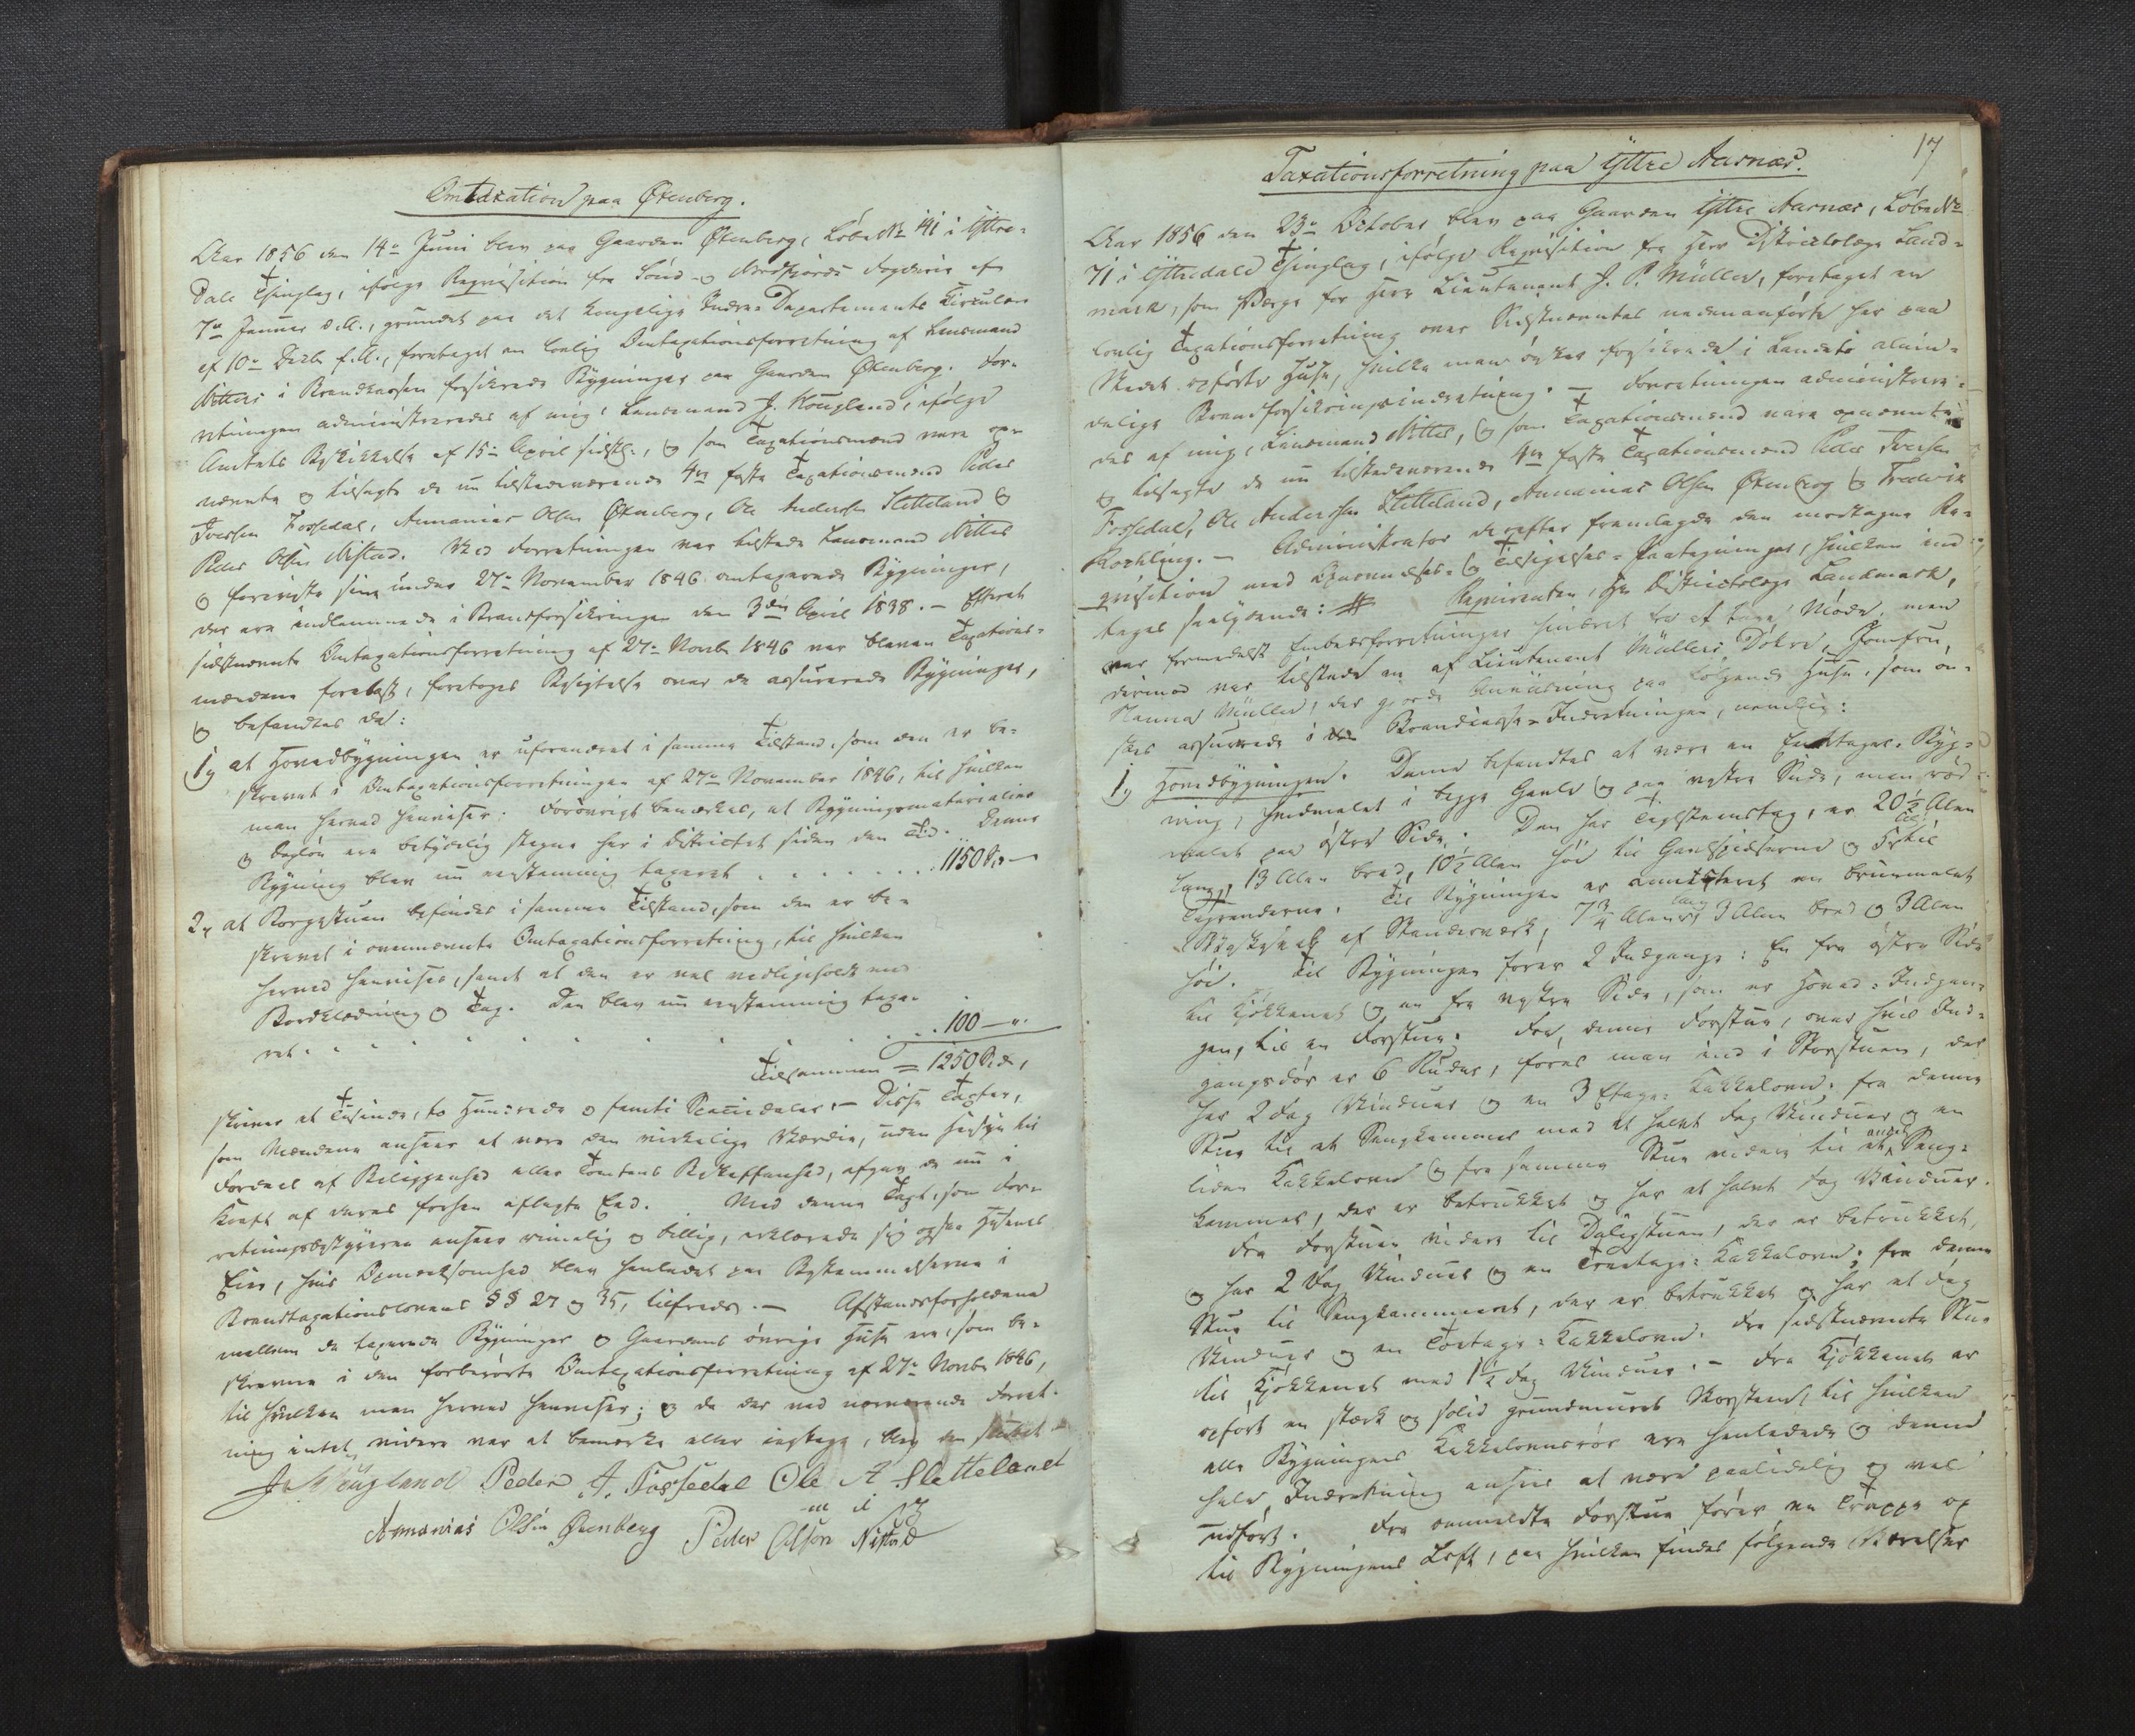 Omtaxation paa Øtenberg.
Aar 1856 den 14de Juni blev paa Gaarden Øtenberg, Løbe No 141 i Yttre-
Dale Thinglag, ifølge Requisition fra Sönd- og Nordfjords Fogderie af
7de Januar d. A., grundet paa det Kongelige Indre-Departements Circulære
af 10de Decbr f. A., foretaget en lovlig Omtaxationsforretning af Lensmand
Nitters i Brandkassen forsikrede Bygninger paa Gaarden Øtenberg. For-
retningen administreredes af mig, Lensmand J. Kougland, ifølge
Amtets Beskikkelse af 15de April sidstl., og som Taxationsmænd vare op-
nævnte og tilsagte de nu tilstedeværende 4re faste Taxationsmænd Peder
Iversen Fossedal, Annanias Olsen Øtenberg, Ole Andersen Sletteland og
Peder Olsen Nistad. Ved Forretningen var tilstede Lensmand Nitter
og foreviste sine under 27de November 1846 omtaxerede Bygninger,
der ere indlemmede i Brandforsikringen den 3die April 1838. – Efterat
sidstnævnte Omtaxationsforretning af 27de Novbr 1846 var bleven Taxations-
mændene forelæst, foretoges Besigtelse over de assurerede Bygninger,
og befandtes da:
1, at Hovedbygningen er uforandret i samme Tilstand, som den er be-
skrevet i Omtaxationsforretningen af 27de November 1846, til hvilken
man herved henviser. Forøvrigt bemærkes, at Bygningsmaterialier
og Dagløn ere betydelig stegne her i Districtet siden den Tid. Denne
Bygning blev nu eenstemmig taxeret . . . . . . . 1150 Spd –
2, at Borgestuen befindes i samme Tilstand, som den er be-
skrevet i ovennævnte Omtaxationsforretning, til hvilken
herved henvises, samt at den er vel vedligeholdt med
Bordklædning og Tag. Den blev nu eenstemmig taxe-
ret . . . . . . . . . . 100 – "
Tilsammen = 1250 Spd,
skriver et Tusinde, to Hundrede og femti Speciedaler. – Disse Taxter,
som Mændene ansaae at være den virkelige Værdie, uden Hensyn til
Fordeel af Beliggenhed eller Tomtens Beskaffenhed, afgav de nu i
Kraft af deres forhen aflagte Eed. Med denne Taxt, som For-
retningsbestyreren ansaae rimelig og billig, erklærede sig ogsaa Husenes
Eier, hvis Opmærksomhed blev henledet paa Bestemmelserne i
Brandtaxationslovens §§ 27 og 35, tilfreds. – Afstandsforholdene
mellem de taxerede Bygninger og Gaardens øvrige Huse ere, som be-
skrevne i den forberørte Omtaxationsforretning af 27de Novbr 1846,
til hvilken man herved henviser; og da der ved nærværende Forret-
ning intet videre var at bemærke eller iagttage, blev den sluttet –
J. Kougland Peder I. Fossedal Ole A Sletteland
m i P
Annanias Olsen Øtenberg Peder Olsen Nistad
17
Taxationsforretning paa Yttre Aarnæs.
Aar 1856 den 23de October blev paa Gaarden Yttre Aarnæs, Løbe No
71 i Yttredale Thinglag, ifølge Requisition fra Herr Districtslæge Land-
mark, som Værge for Herr Lieutenant J. P. Müller, foretaget en
lovlig Taxationsforretning over Sidstnævntes nedenanførte her paa
Stedet opførte Huse, hvilke man ønsker forsikrede i Landets almin-
delige Brandforsikringsindretning. – Forretningen administrere-
des af mig, Lensmand Nitter, og som Taxationsmænd vare opnævnte
og tilsagte de nu tilstedeværende 4re faste Taxationsmænd Peder Iversen
Fossedal, Ole Andersen Sletteland, Annanias Olsen Øtenberg og Frederik
Koehling. – Administrator derefter fremlagde den modtagne Re-
quisition med Opnævnelses- og Tilsigelses-Paategninger, hvilken ind-
tages saalydende: # Requirenten, Hr Districtslæge Landmark,
var formedelst Embedsforretninger hindret fra at tage Møde, men
derimod var tilstede en af Lieutenant Müllers Døtre, Jomfru
Hanna Müller, der gjorde Anviisning paa følgende Huse, som øn-
skes assurerede i Brandcasse-Indretningen, nemlig:
1, Hovedbygningen. Denne befandtes at være en Eenetages-Byg-
ning, hvidmalet i begge Gavle og paa vestre Side, men rød-
malet paa østre Side. Den har Teglsteenstag, er 20½ Alen
lang, 13 Alen bred, 10½ Alen høi til Gavlspidserne og 5 til
Tagrenderne. Til Bygningen er annecteret en brunmalet
af Standerværk, 7¾ Alen lang, 3 Alen bred og 3 Alen
høi. Til Bygningen fører 2 Indgange: En fra østre Side
til Kjøkkenet og en fra vestre Side, som er Hoved-Indgan-
gen, til en Forstue. Fra denne Forstue, over hvis Ind-
gangsdør er 6 Ruder, føres man ind i Storstuen, der
har 2 Fag Vinduer og en 3 Etage-Kakkelovn. Fra denne
Stue til et Sengkammer med et halvt Fag Vinduer og en
liden Kakkelovn og fra samme Stue videre til et andet Seng-
kammer, der er betrukket og har et halvt Fag Vinduer.
Fra Forstuen videre til Dagligstuen, der er betrukket,
og har 2 Fag Vinduer og en Treetage-Kakkelovn; fra denne
Stue til Sengkammeret, der er betrukket og har et Fag
Vinduer og en Toetage-Kakkelovn. Fra sidstnævnte Stue
til Kjøkkenet med 1½ Fag Vinduer. – Fra Kjøkkenet er
opført en stærk og solid grundmuret Skorsteen, til hvilken
alle Bygningens Kakkelovnsrør ere henledede og denne
hele Indretning ansees at være paalidelig og vel
udført. Fra ommeldte Forstue fører en Trappe op
til Bygningens Loft, paa hvilken findes følgende Værelser